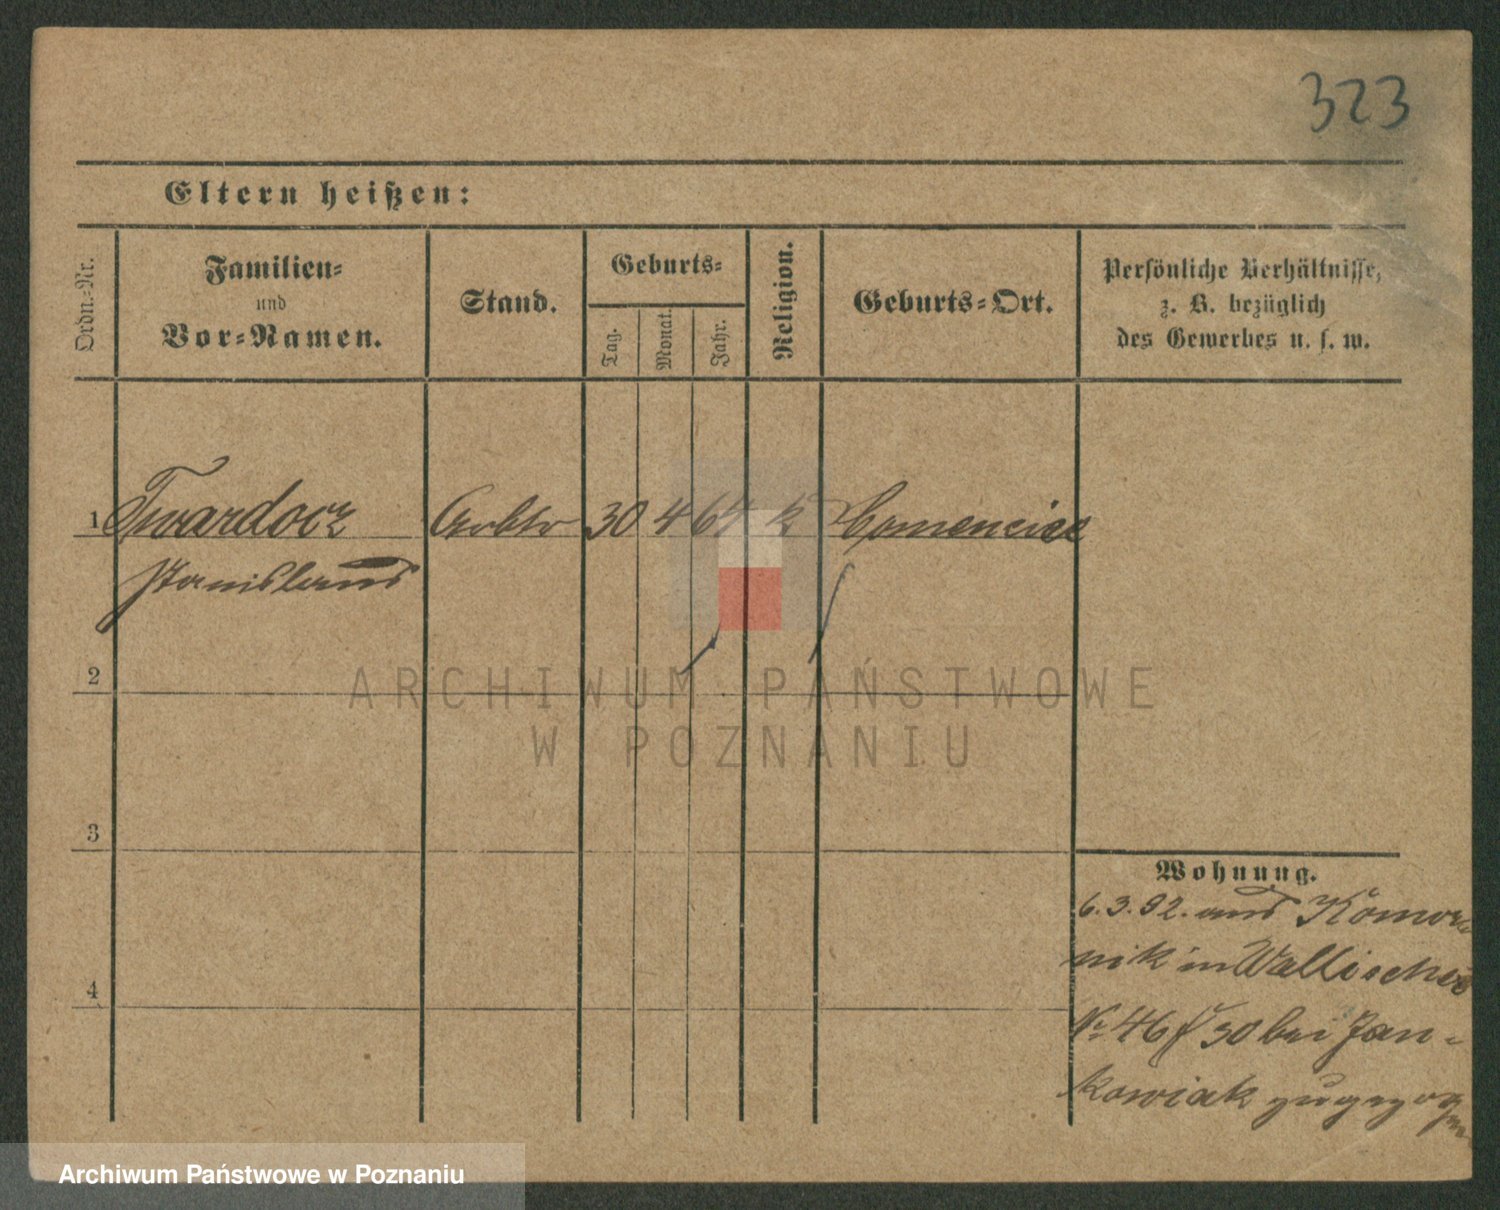 323
Eltern heißen:
Ordn.-Nr.
Familien-
und
Vor-Namen.
Stand.
Geburts-
Tag.
Monat.
Jahr.
Religion.
Geburts-Ort.
Persönliche Verhältnisse,
z. B. bezüglich
des Gewerbes u. s. w.
1 Twardocz 30 4 64 k
Stanislaus
2
ARCHIWUM PAŃSTWOWE
W POZNANIU
3
Wohnung.
6.3.92. aus Komor
nik in Wallischei
4
No 46/50 bei Jan-
kowiak zugezogen
Archiwum Państwowe w Poznaniu